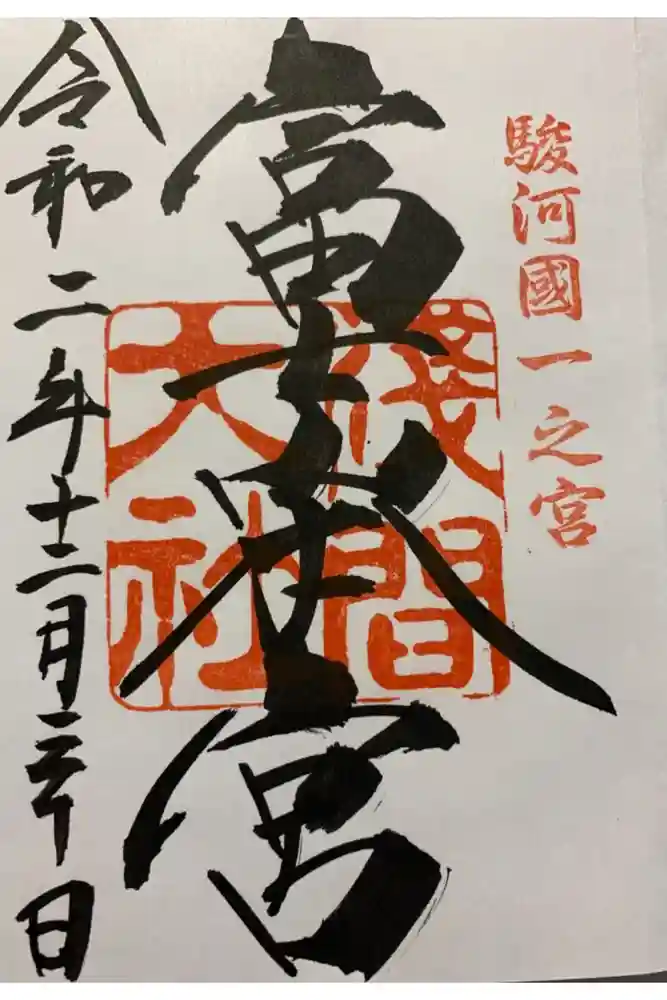 駿河國一之宮
富士本宮
淺間
大社
令和二年十二月三十日